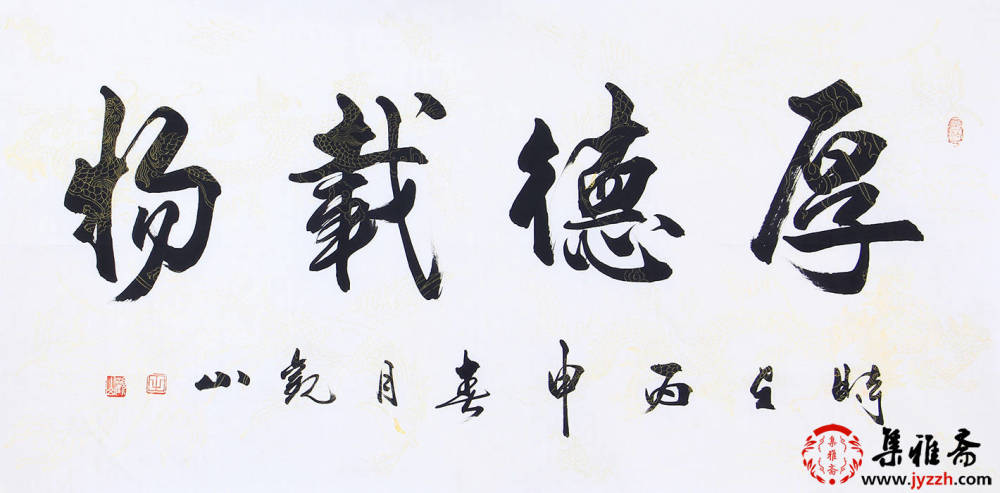 厚德载物
時在丙申春月觀山
集雅斋
集雅斋
www.jyzzh.com